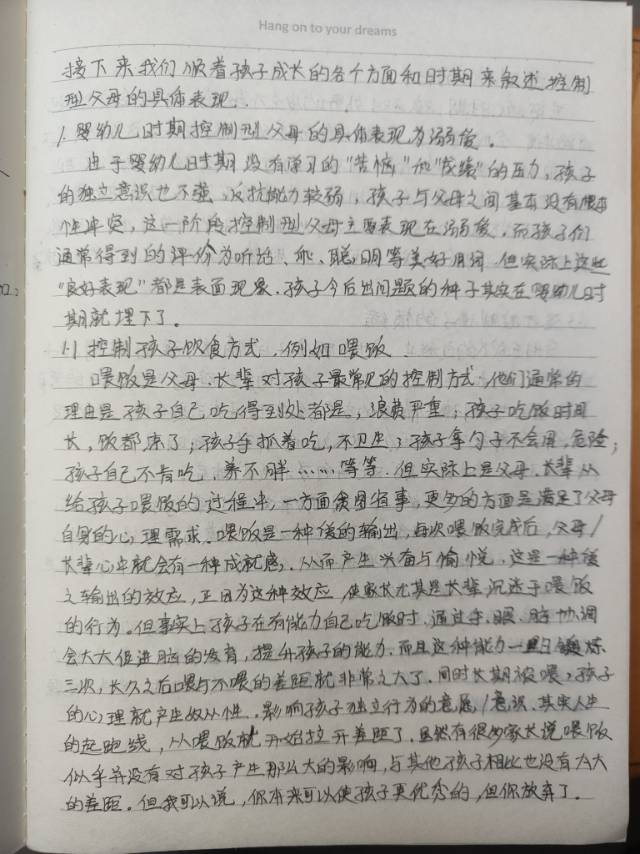 Hang on to your dreams
接下来我们顺着孩子成长的各个方面和时期来叙述控制
型父母的具体表现.
1.婴幼儿时期控制型父母的具体表现为溺爱。
由于婴幼儿时期没有学习的"苦恼"和"成绩"的压力,孩子
的独立意识也不强、反抗能力较弱,孩子与父母之间基本没有根本
性冲突,这一阶段控制型父母主要表现在溺爱,而孩子们
通常得到的评价为听话、乖、聪明等美好用词.但实际上这些
"良好表现"都是表面现象.孩子今后出问题的种子其实在婴幼儿时
期就埋下了。
1.1 控制孩子饮食方式,例如喂饭
喂饭是父母、长辈对孩子最常见的控制方式.他们通常的
理由是孩子自己吃得到处都是,浪费严重;孩子吃饭时间
长,饭都凉了;孩子手抓着吃,不卫生;孩子拿勺子不会用,危险;
孩子自己不肯吃,养不胖……等等.但实际上是父母、长辈从
给孩子喂饭的过程中,一方面贪图省事,更多的方面是满足了父母
自身的心理需求.喂饭是一种爱的输出,每次喂饭完成后,父母/
长辈心中就会有一种成就感,从而产生兴奋与愉悦,这是一种爱
之输出的效应,正因为这种效应,使家长尤其是长辈沉迷于喂饭
的行为.但事实上孩子在有能力自己吃饭时,通过手、眼、脑协调
会大大促进脑的发育,提升孩子的能力.而且这种能力一日锻炼
三次,长久之后喂与不喂的差距就非常之大了.同时长期被喂,孩子
的心理就产生奴从性,影响孩子独立行为的意愿/意识.其实人生
的起跑线,从喂饭就开始拉开差距了.虽然有很多家长说喂饭
似乎并没有对孩子产生那么大的影响,与其他孩子相比也没有太大
的差距.但我可以说,你本来可以使孩子更优秀的,但你放弃了.